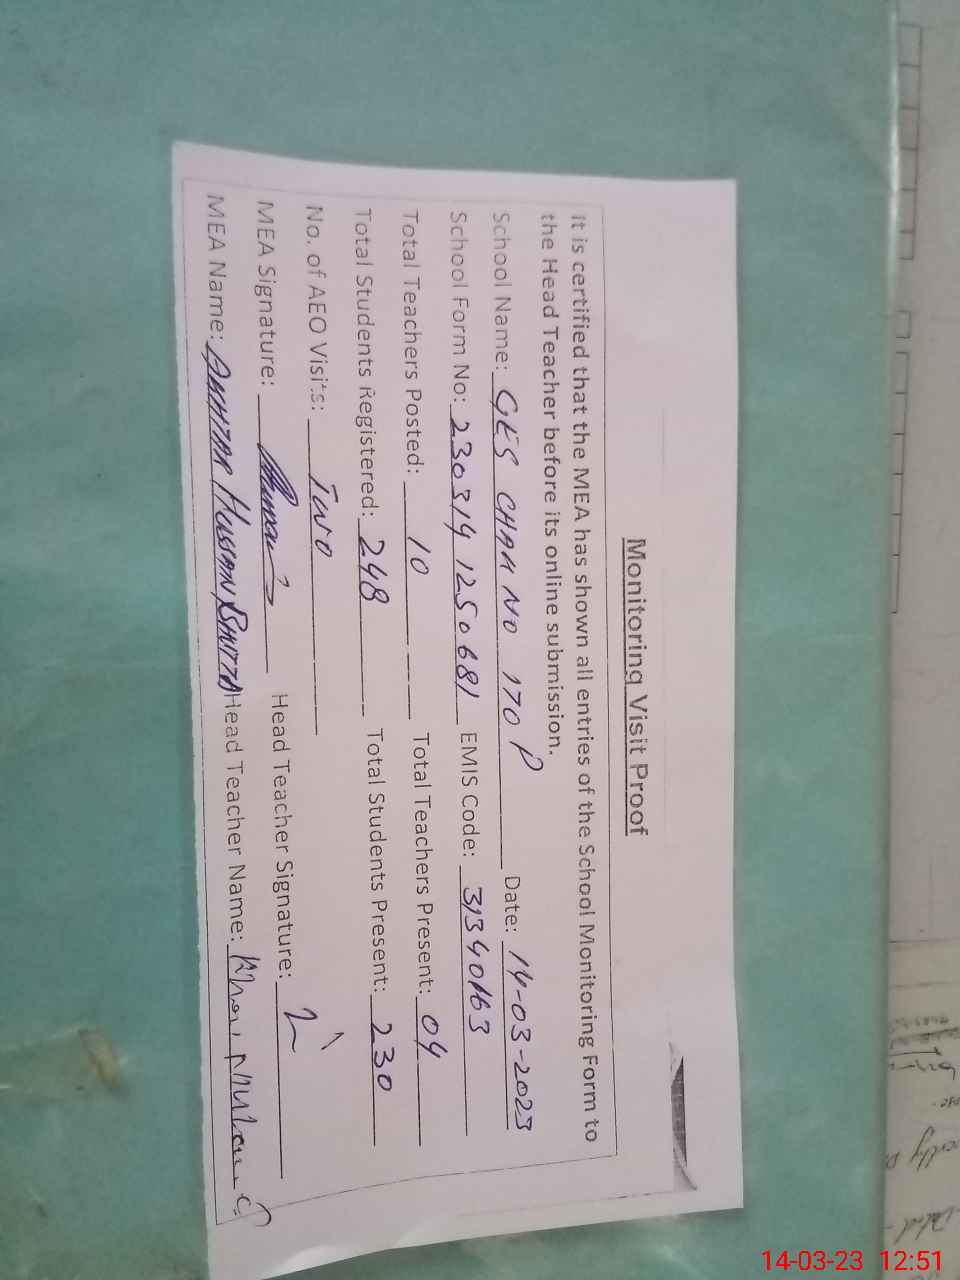 Monitoring Visit Proof
It is certified that the MEA has shown all entries of the School Monitoring Form to
the Head Teacher before its online submission.
School Name: GES CHAK NO 170 P Date: 14-03-2023
School Form No: 230314 1250681 EMIS Code: 31340163
Total Teachers Posted: 10 Total Teachers Present: 04
Total Students Registered: 248 Total Students Present: 230
No. of AEO Visits: Two
MEA Signature: Head Teacher Signature:
MEA Name: AKHTAR HUSSAIN BHUTTA Head Teacher Name:
14-03-23 12:51